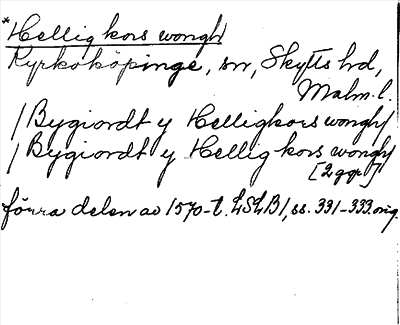 *Hellig kors wongh/
Kyrkoköpinge, sn, Skytts hd,
Malm.l.
/Bygiordt y Helligkors wongh/
/Bygiordt y Hellig kors wongh/
[2 ggr]
förra delen av 1570-t. LSLB1, ss. 331-333. orig.